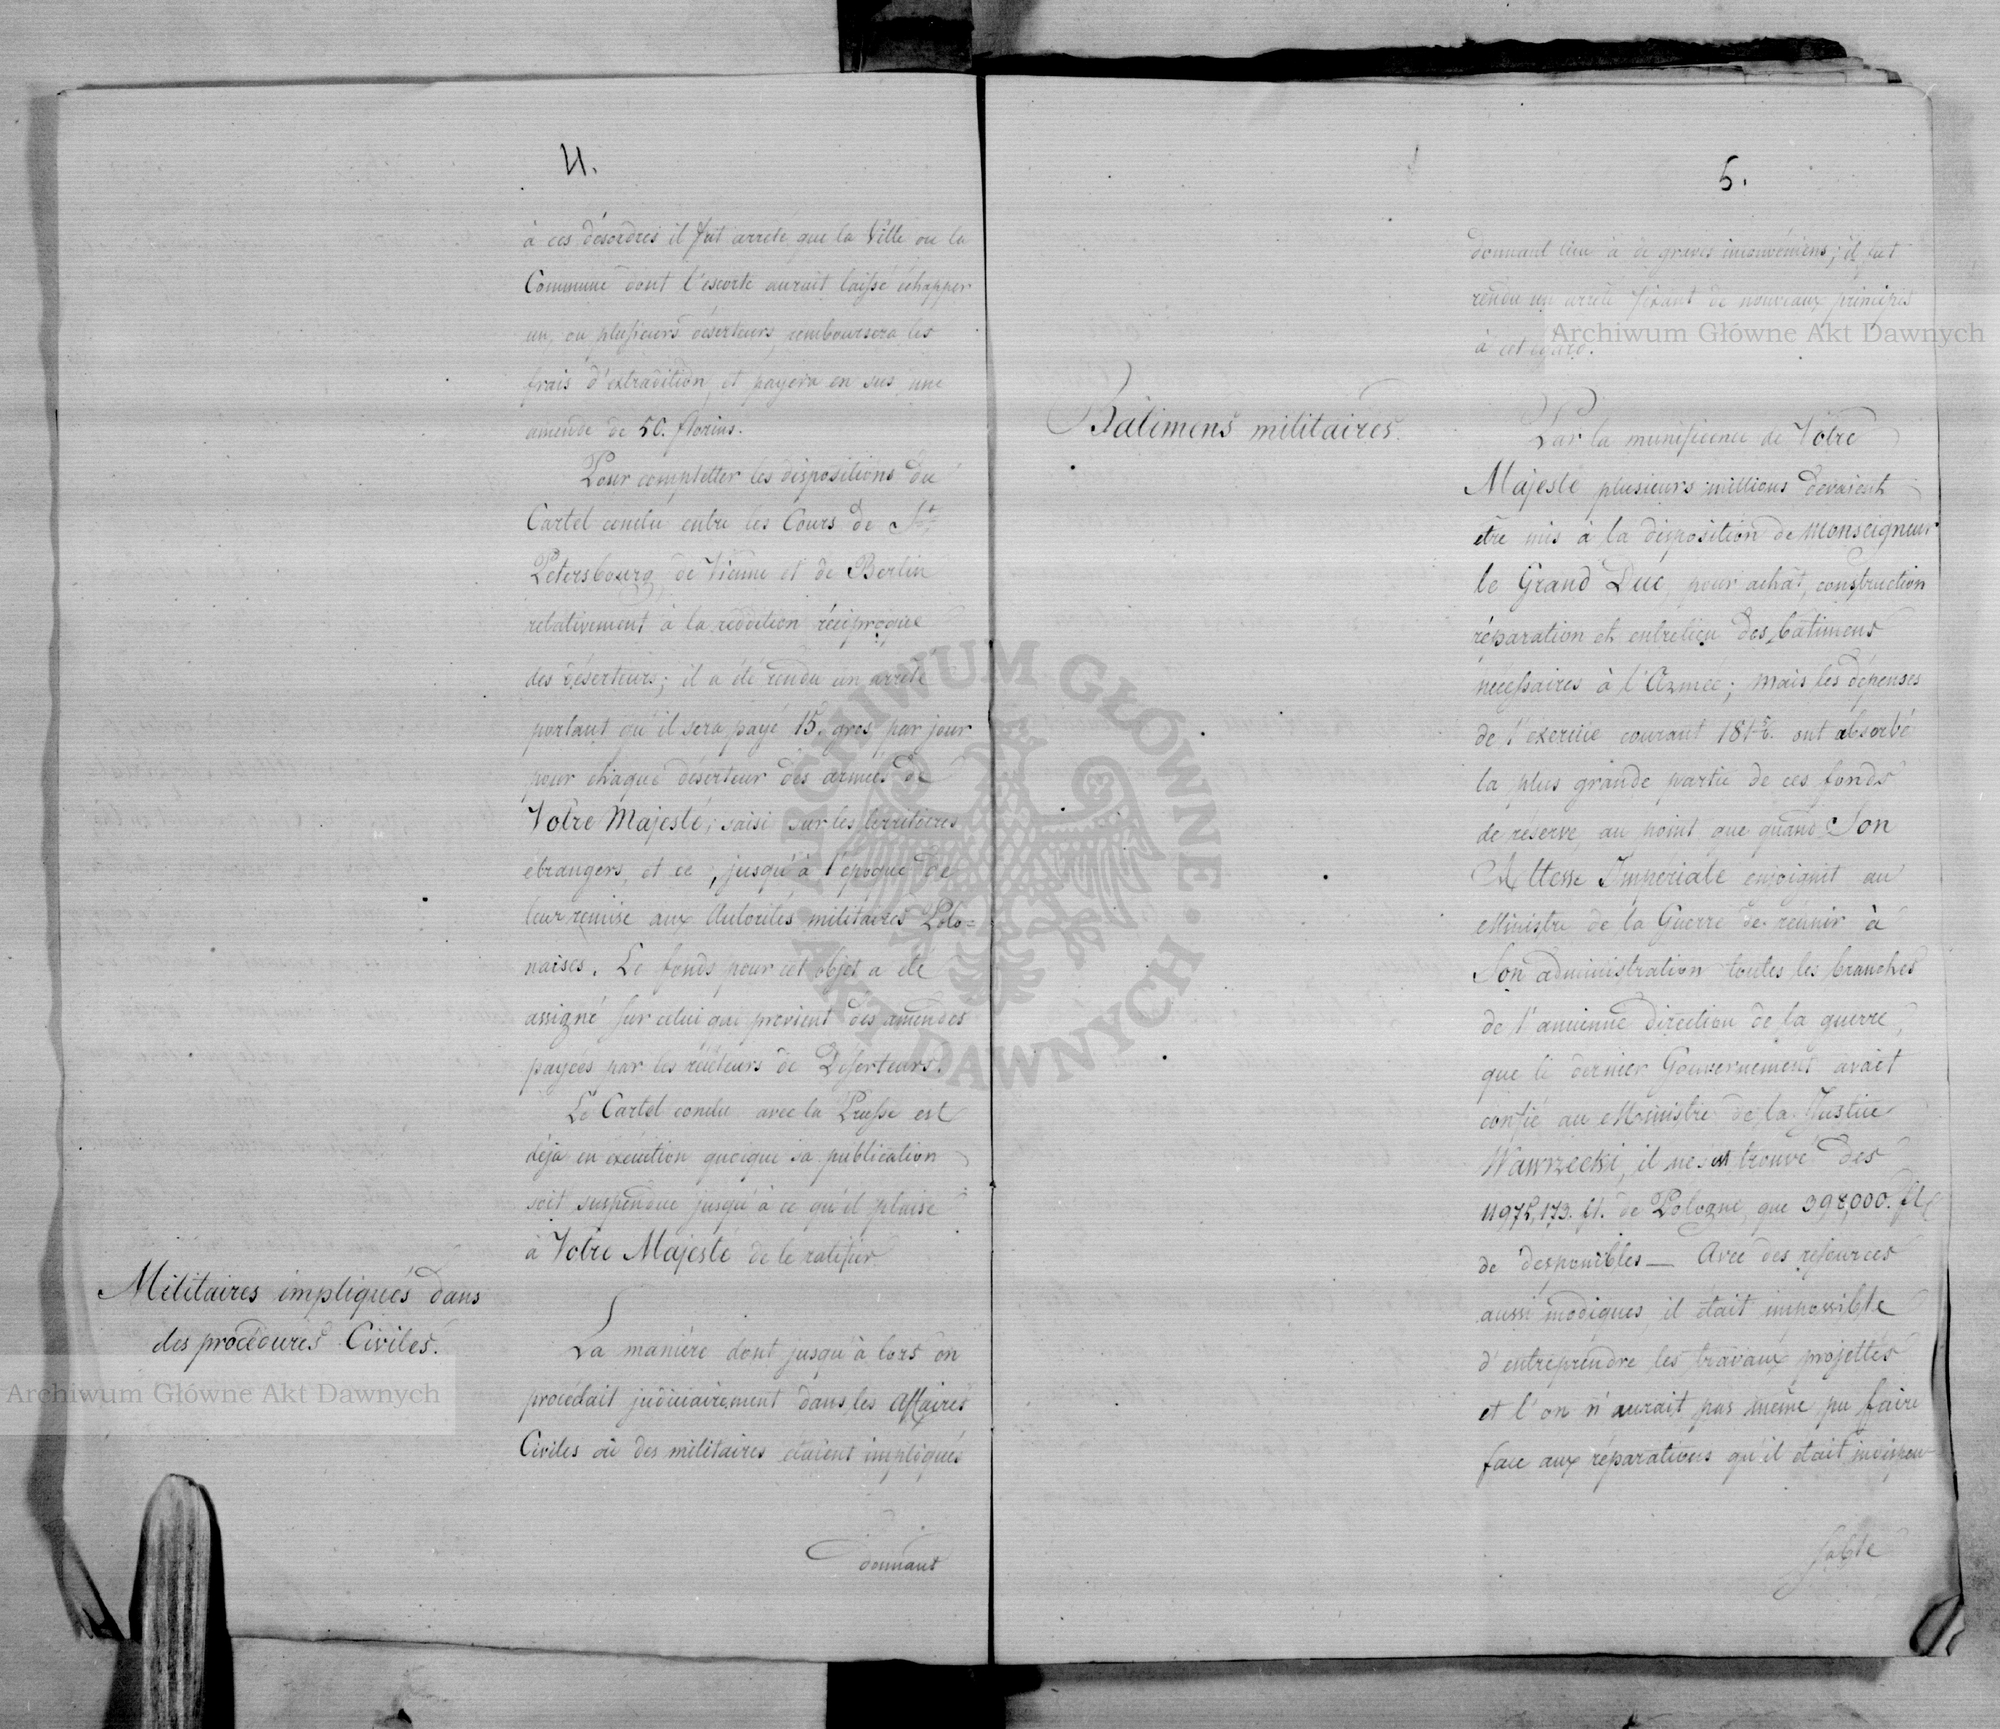 4.
à ces désordres il fut arrêté que la Ville ou la
Commune dont l'escorte aurait laissé échapper
un, ou plusieurs déserteurs, remboursera les
frais d'extradition, et payera en sus une
amende de 50. florins.
Pour completter les dispositions du
Cartel conclu entre les Cours de St.
Petersbourg, de Vienne et de Berlin
relativement à la reddition réciproque
des déserteurs; il a été rendu un arrêté
portant qu'il sera payé 15. gros par jour
pour chaque déserteur des armées de
Votre Majesté, saisi sur les territoires
étrangers, et ce, jusqu'à l'époque de
leur remise aux Autorités militaires Polo=
naises. Le fonds pour cet objet a été
assigné sur celui qui provient des amendes
payées par les recéleurs de Déserteurs.
Le Cartel conclu avec la Prusse est
déja en éxécution quoique sa publication
soit suspendue jusqu'à ce qu'il plaise
à Votre Majesté de le ratifier
Militaires impliqués dans
des procédures Civiles.
La manière dont jusqu'à lors on
procédait judiciairement dans les Affaires
Civiles où des militaires étaient impliqués
donnant
5.
donnant lieu à de graves inconvéniens; il fut
rendu un arrêté fixant de nouveaux principes
à cet égard.
Bâtimens militaires.
Par la munificence de Votre
Majesté plusieurs millions devaient
être mis à la disposition de Monseigneur
le Grand Duc, pour achat, construction
réparation et entretien des bâtimens
nécessaires à l'Armée; mais les dépenses
de l'exercice courant ont absorbé
la plus grande partie de ces fonds
de réserve, au point que quand Son
Altesse Impériale enjoignit au
Ministre de la Guerre de réunir à
Son administration toutes les branches
de l'ancienne direction de la guerre,
que le dernier Gouvernement avait
confié au Ministre de la Justice
Wawrzecki, il ne s'est trouvé des
fl. de Pologne, que 398,000. fl
de disponibles — Avec des resources
aussi modiques, il était impossible
d'entreprendre les travaux projettés
et l'on n'aurait pas même pu faire
face aux réparations qu'il était indispen
sable
Archiwum Główne Akt Dawnych
ARCHIWUM GŁÓWNE · AKT DAWNYCH ·
Archiwum Główne Akt Dawnych